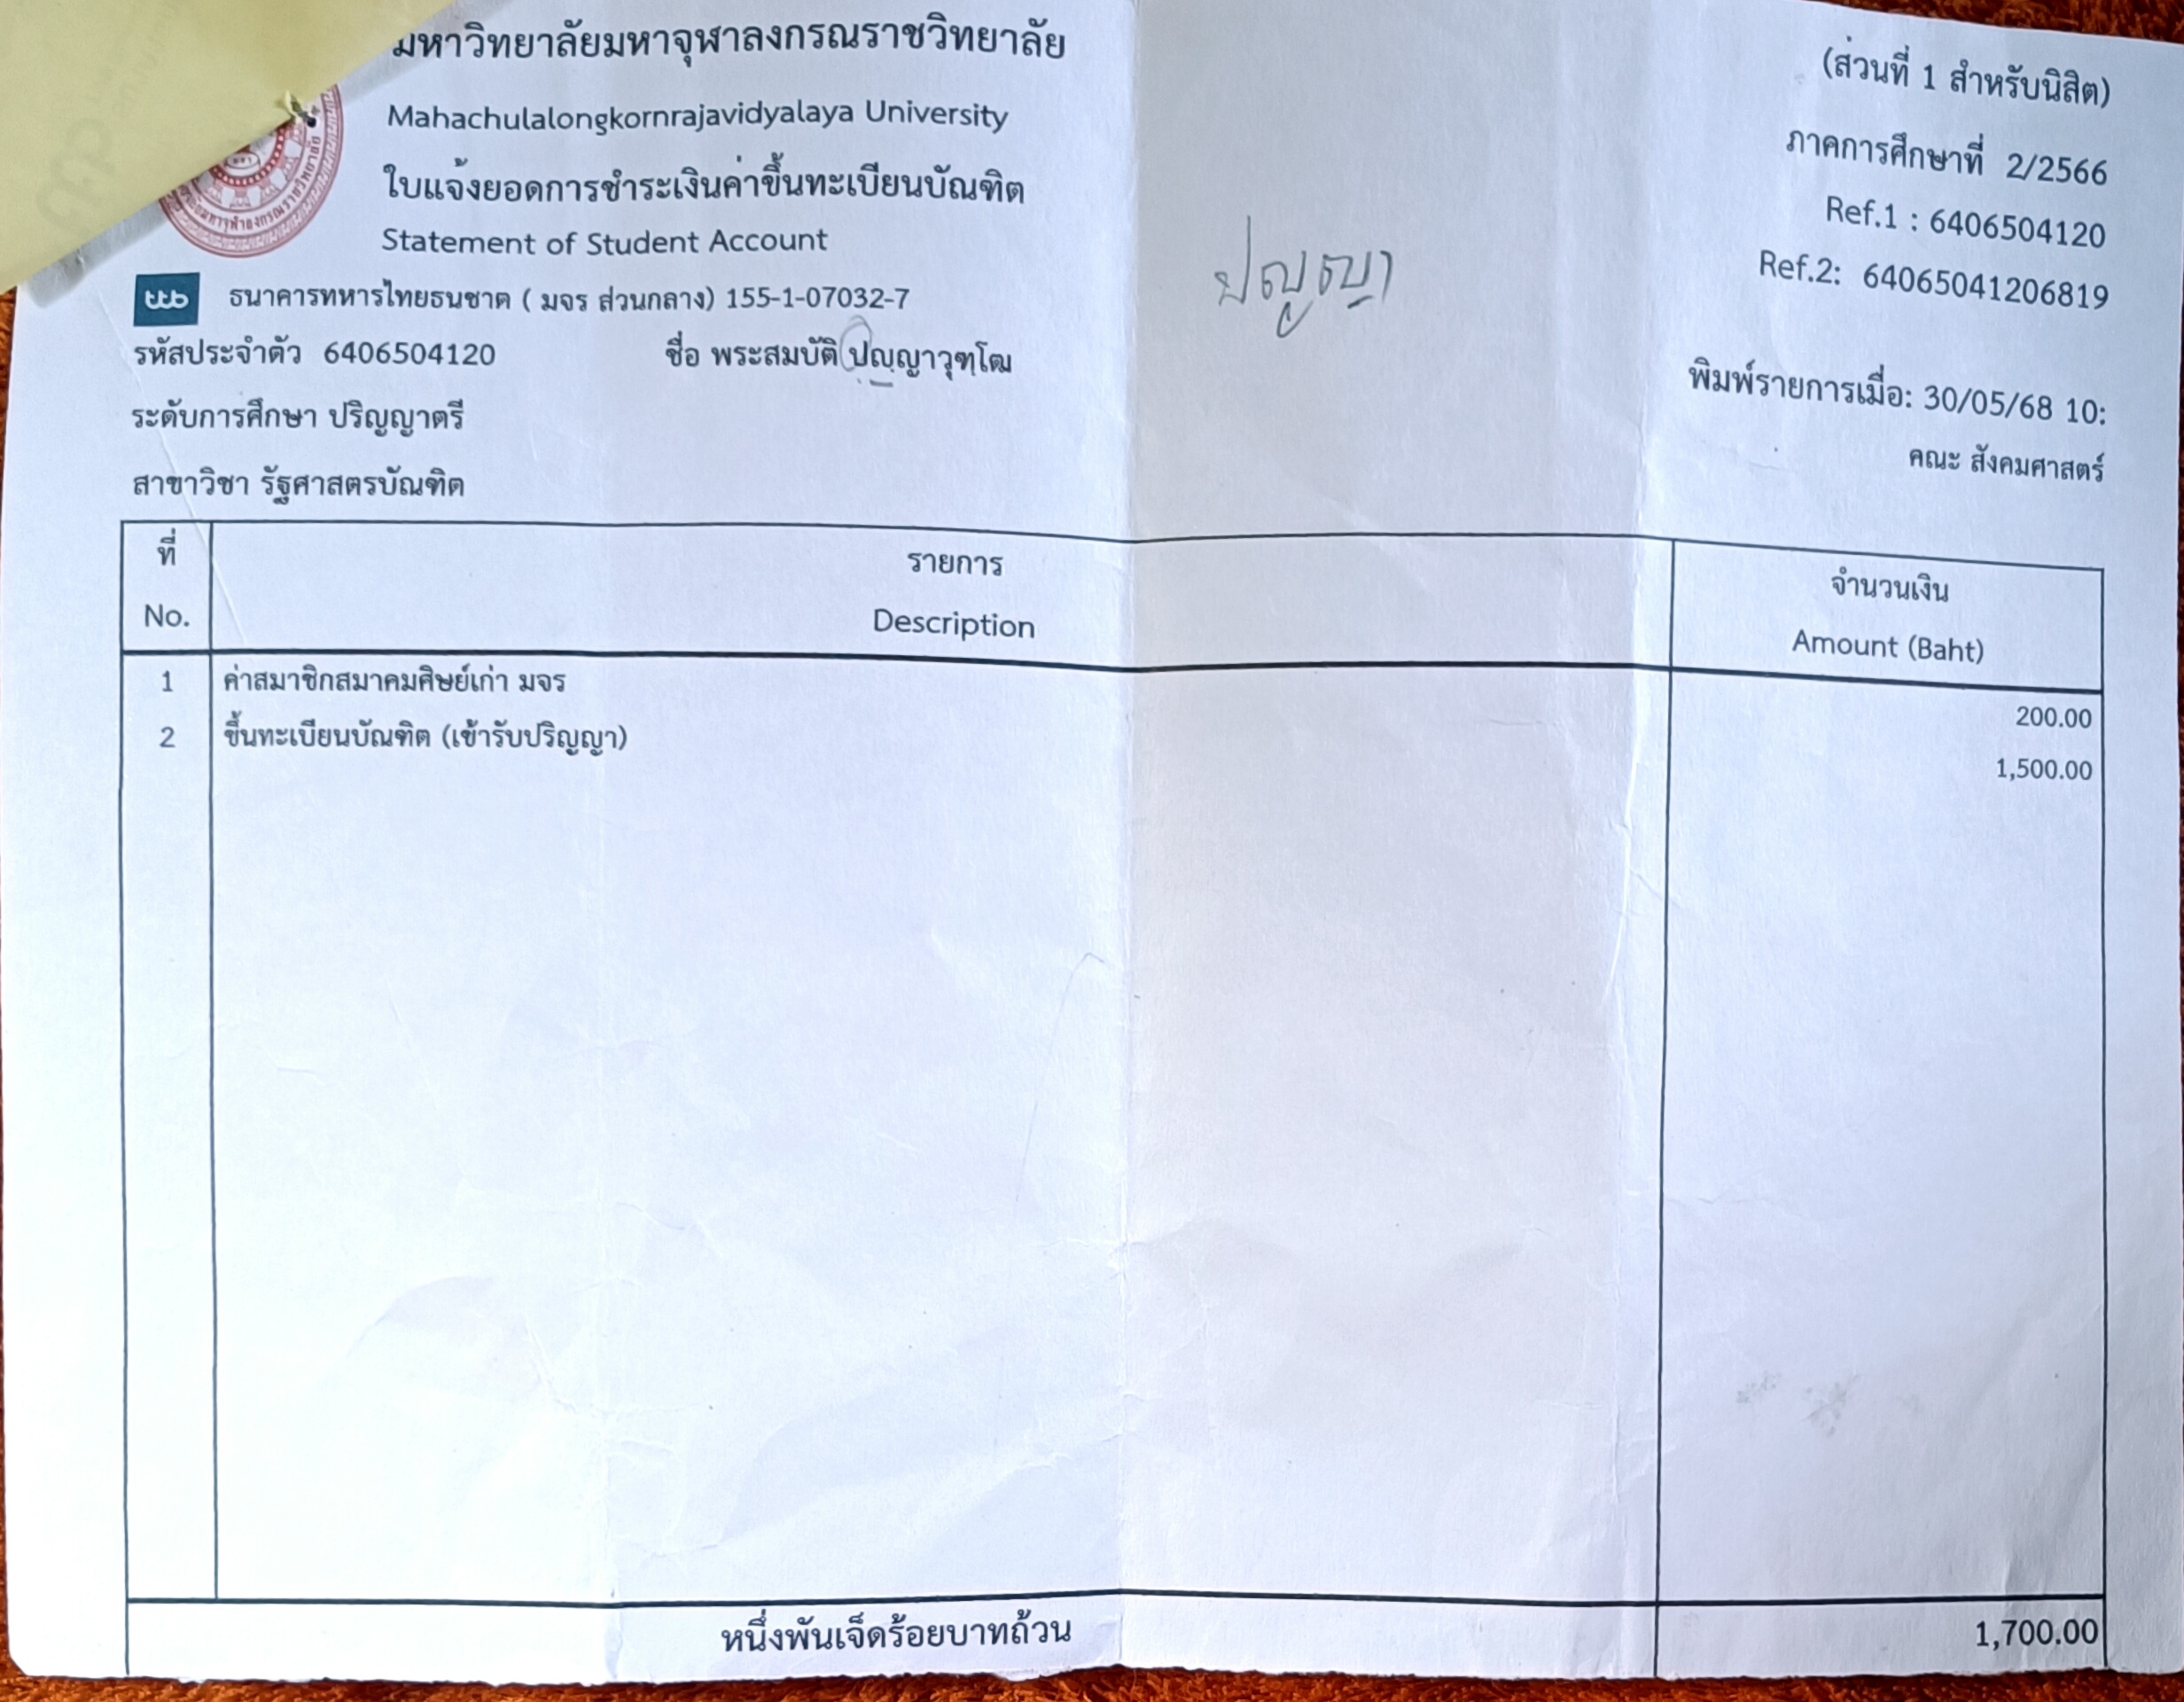 มหาวิทยาลัยมหาจุฬาลงกรณราชวิทยาลัย
(ส่วนที่ 1 สำหรับนิสิต)
Mahachulalongkornrajavidyalaya University
ภาคการศึกษาที่ 2/2566
ใบแจ้งยอดการชำระเงินค่าขึ้นทะเบียนบัณฑิต
Ref.1 : 6406504120
Statement of Student Account
Ref.2: 64065041206819
ปญฺญา
ttb ธนาคารทหารไทยธนชาต ( มจร ส่วนกลาง) 155-1-07032-7
รหัสประจำตัว 6406504120 ชื่อ พระสมบัติ ปญฺญาวุฑฺโฒ
พิมพ์รายการเมื่อ: 30/05/68 10:
ระดับการศึกษา ปริญญาตรี
คณะ สังคมศาสตร์
สาขาวิชา รัฐศาสตรบัณฑิต
ที่ รายการ จำนวนเงิน
No. Description Amount (Baht)
1 ค่าสมาชิกสมาคมศิษย์เก่า มจร 200.00
2 ขึ้นทะเบียนบัณฑิต (เข้ารับปริญญา) 1,500.00
หนึ่งพันเจ็ดร้อยบาทถ้วน 1,700.00